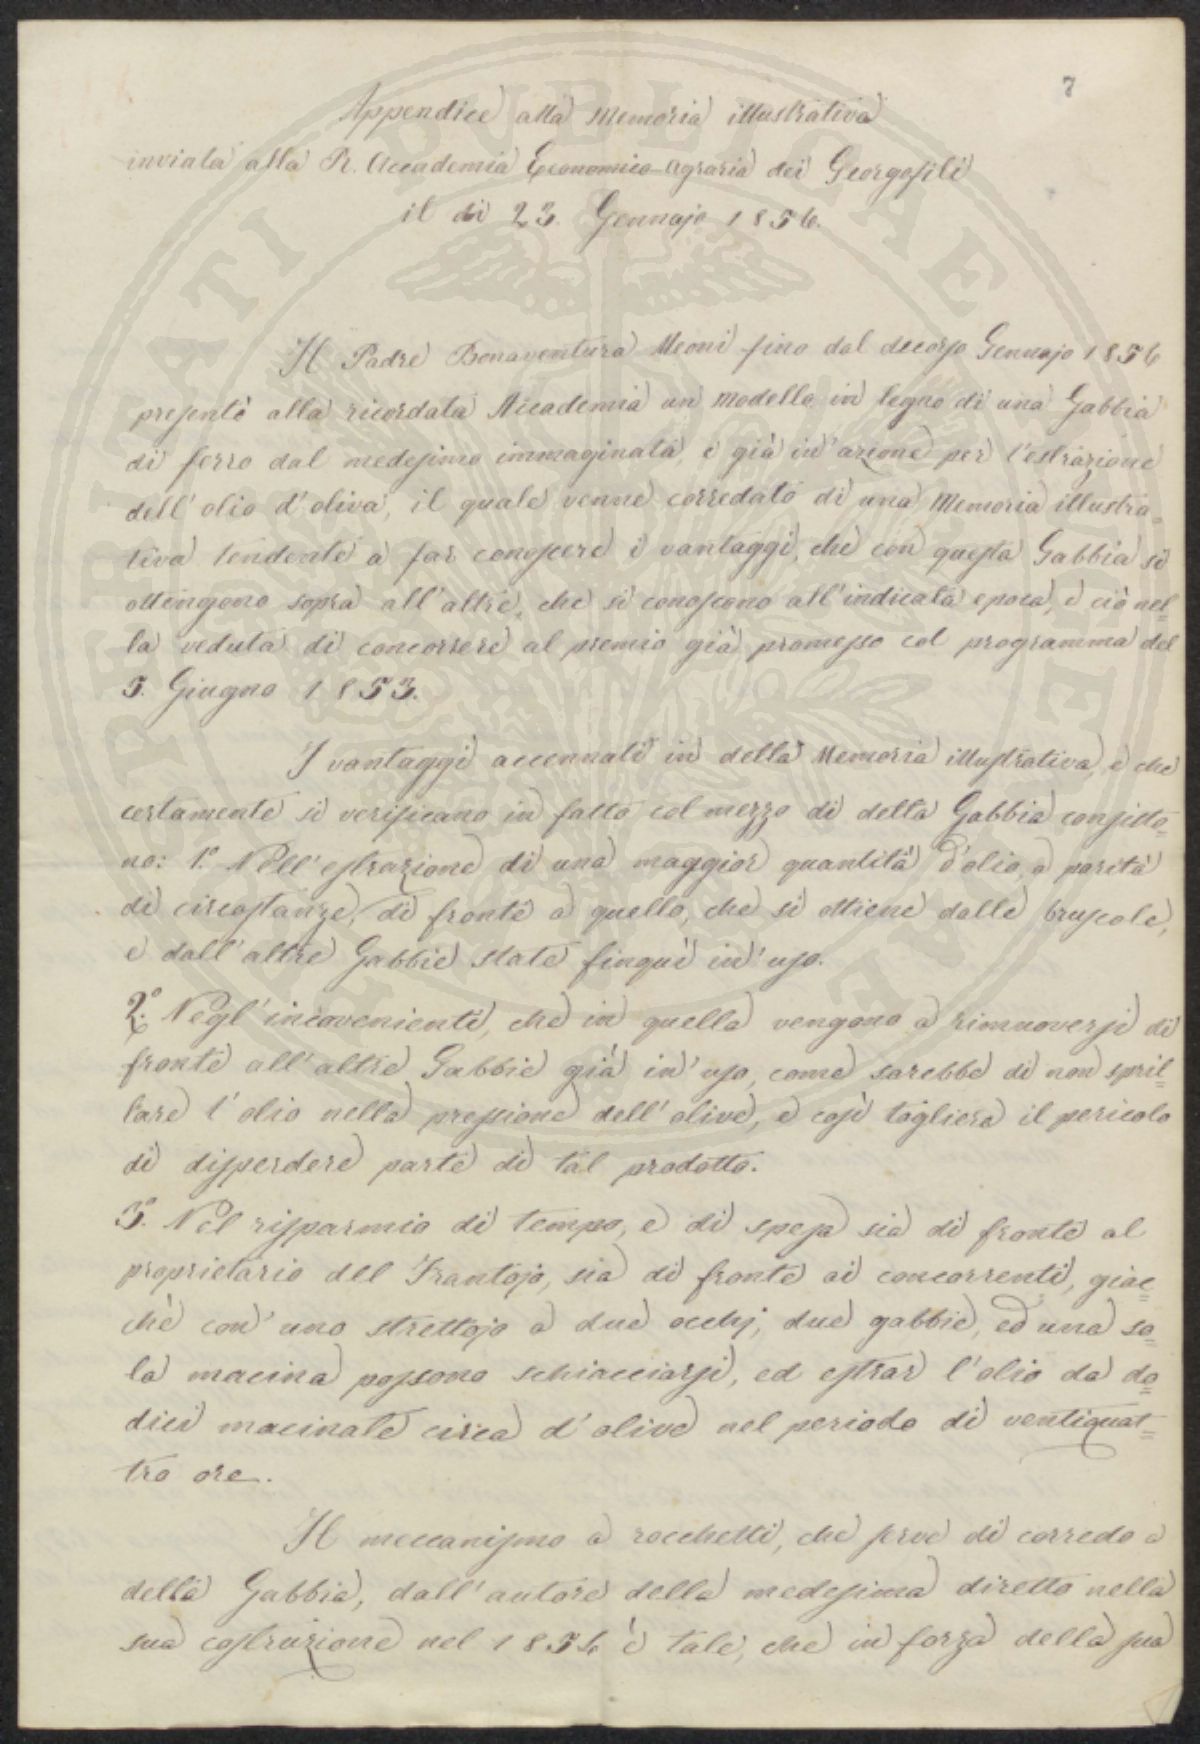 7
Appendice alla Memoria illustrativa
inviata alla R. Accademia Economico-Agraria dei Georgofili
il dì 23. Gennajo 1856.
Il Padre Bonaventura Meoni fino dal decorso Gennajo 1856
presentò alla ricordata Accademia un modello in legno di una Gabbia
di ferro dal medesimo immaginata, e già in' azione per l'estrazione
dell' olio d'oliva, il quale venne corredato di una Memoria illustra-
tiva tendente a far conoscere i vantaggi, che con questa Gabbia si
ottengono sopra all'altre, che si conoscono all'indicata epoca, e ciò nel-
la veduta di concorrere al premio già promesso col programma del
5. Giugno 1853.
I vantaggi accennati in detta Memoria illustrativa, e che
certamente si verificano in fatto col mezzo di detta Gabbia consisto-
no: 1.° Nell' estrazione di una maggior quantità d'olio, a parità
di circostanze, di fronte a quello, che si ottiene dalle bruscole,
e dall'altre Gabbie state finquì in' uso.
2.° Negl' inconvenienti, che in quella vengono a rimuoversi di
fronte all'altre Gabbie già in' uso, come sarebbe di non spril-
lare l'olio nella pressione dell' olive, e così togliere il pericolo
di disperdere parte di tal prodotto.
3.° Nel risparmio di tempo, e di spesa sia di fronte al
proprietario del Frantojo, sia di fronte ai concorrenti, giac-
chè con' uno strettojo a due occhj, due gabbie, ed una so-
la macina possono schiacciarsi, ed estrar l'olio da do-
dici macinate circa d'olive nel periodo di ventiquat-
tro ore.
Il meccanismo a rocchetti, che serve di corredo a
detta Gabbia, dall' autore della medesima diretto nella
sua costruzione nel 1856 è tale, che in forza della sua